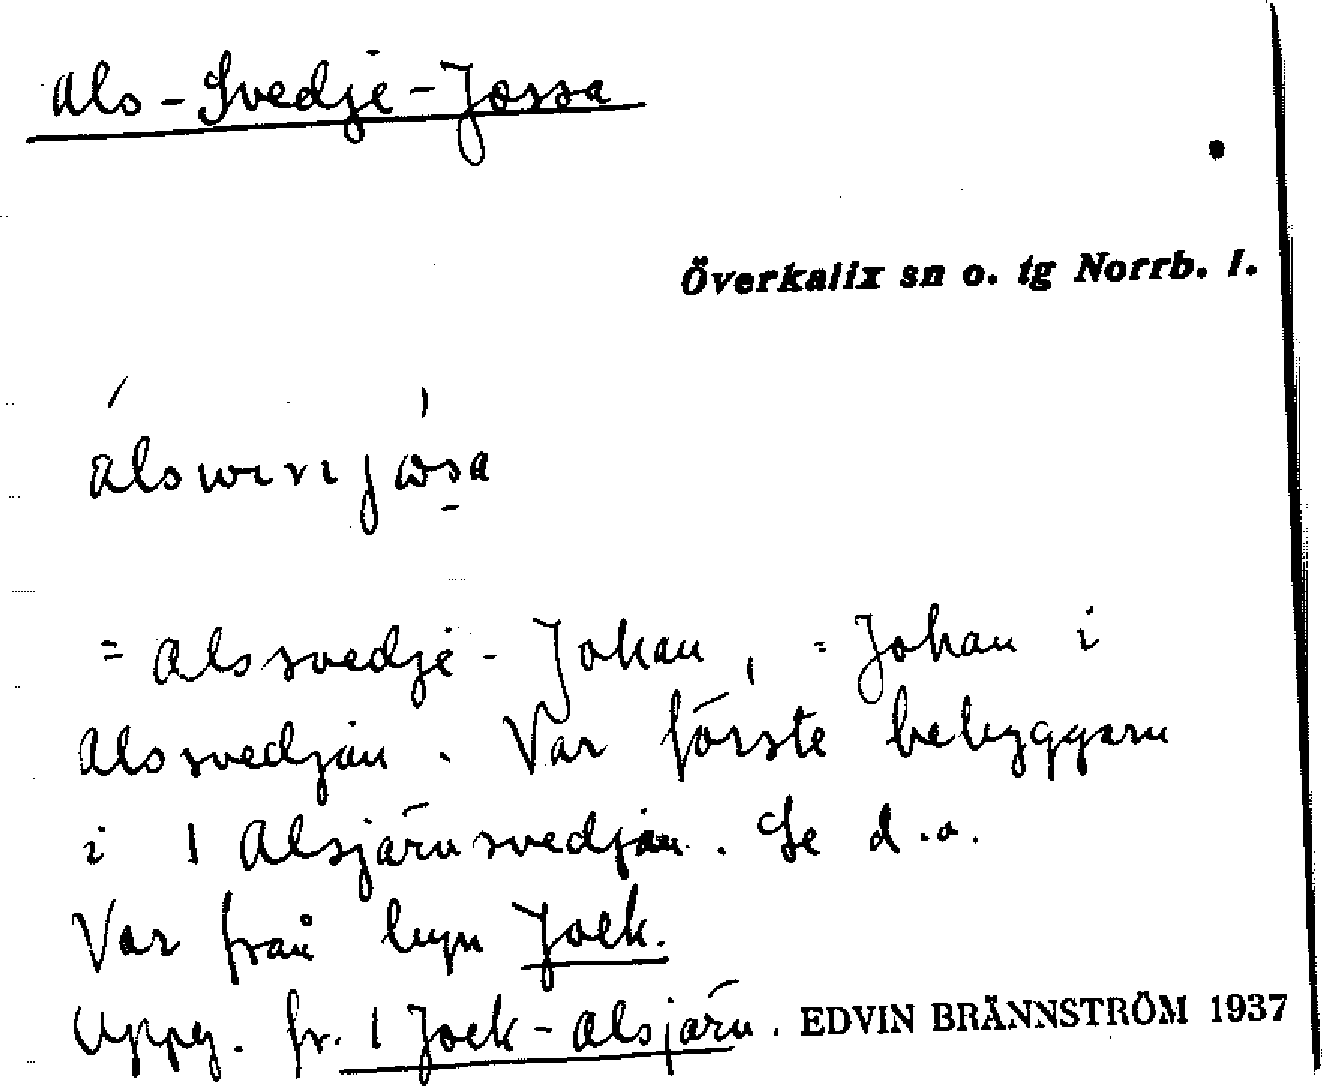 Als-Svedje-Jossa
Överkalix sn o. tg Norrb. l.
= Alssvedje-Johan, = Johan i
Alssvedjan. Var förste bebyggaren
i 1 Alsjärvsvedjan. Se d.o.
Var från byn Joek.
Uppg. fr. 1 Joek-Alsjärv. EDVIN BRÄNNSTRÖM 1937